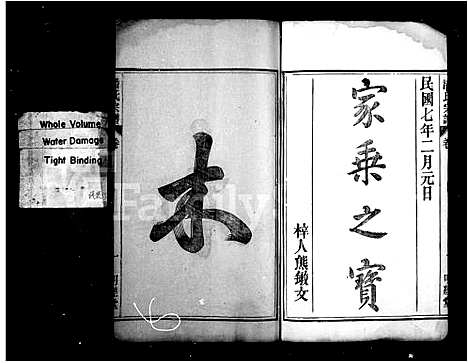 民國七年二月元日
家乘之寶
梓人熊緞文
木
Whole Volume
Water Damage
Tight Binding
6